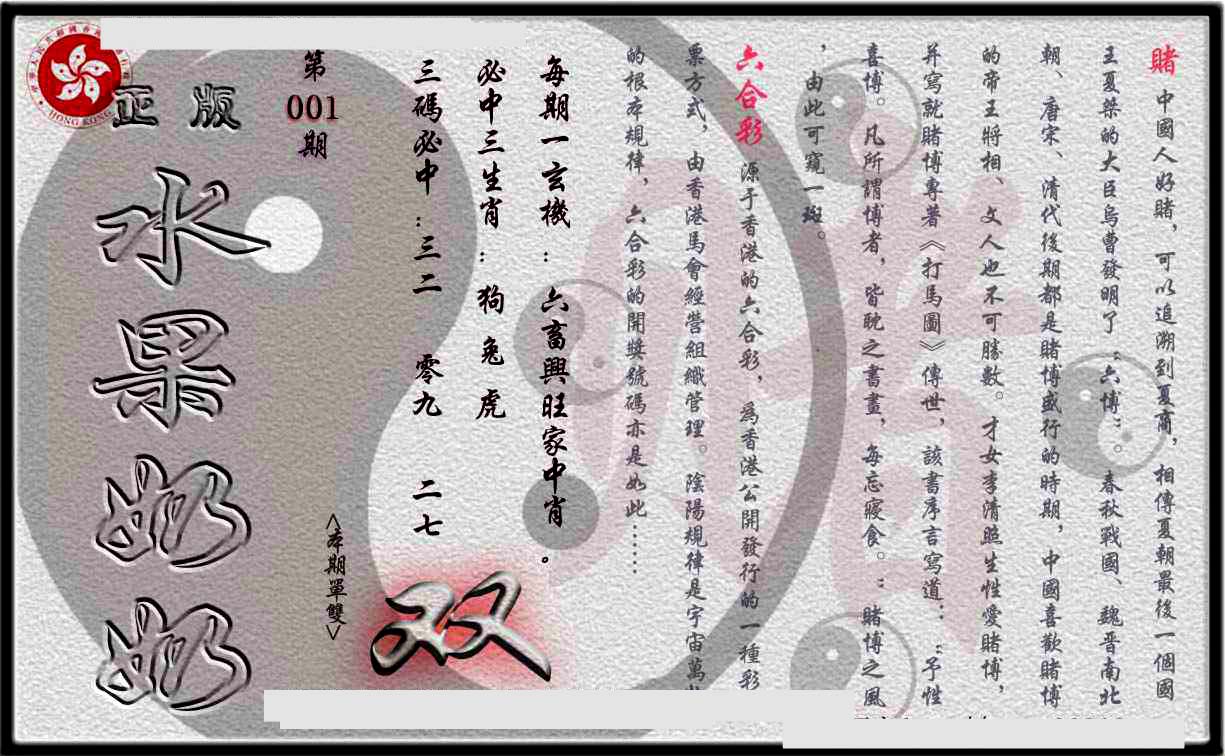 賭 中國人好賭，可以追溯到夏商，相傳夏朝最後一個國
王夏桀的大臣烏曹發明了“六博”。春秋戰國、魏晉南北
朝、唐宋、清代後期都是賭博盛行的時期，中國喜歡賭博
的帝王將相、文人也不可勝數。才女李清照生性愛賭博，
并寫就賭博專著《打馬圖》傳世，該書序言寫道：“予性
喜博。凡所謂博者，皆耽之書畫，每忘寢食。”賭博之風
，由此可窺一斑。
六合彩 源于香港的六合彩，為香港公開發行的一種彩
票方式，由香港馬會經營組織管理。陰陽規律是宇宙萬
的根本規律，六合彩的開獎號碼亦是如此……
每期一玄機：六畜興旺家中肖。
必中三生肖：狗 兔 虎
三碼必中：三二 零九 二七
第
001
期
<本期單雙>
双
正版
水果奶奶
HONG KONG